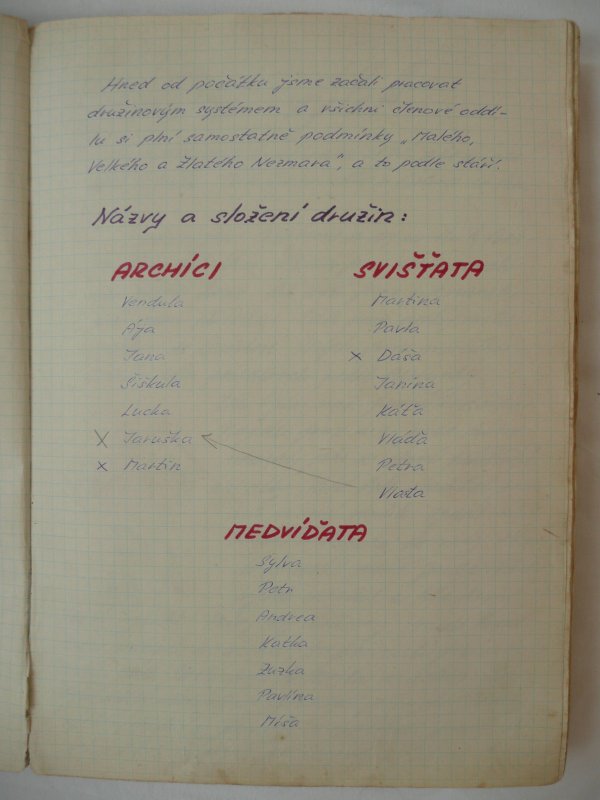 Hned od počátku jsme začali pracovat
družinovým systémem a všichni členové oddí-
lu si plní samostatně podmínky „Malého,
Velkého a Zlatého Nezmara", a to podle stáří.
Názvy a složení družin:
ARCHÍCI
Vendula
Ája
Jana
Šiškula
Lucka
X Jaruška
x Martin
SVIŠŤATA
Martina
Pavla
x Dáša
Janina
Káťa
Vláďa
Petra
Vlasta
MEDVÍĎATA
Sylva
Petr
Andrea
Katka
Zuzka
Pavlína
Míša